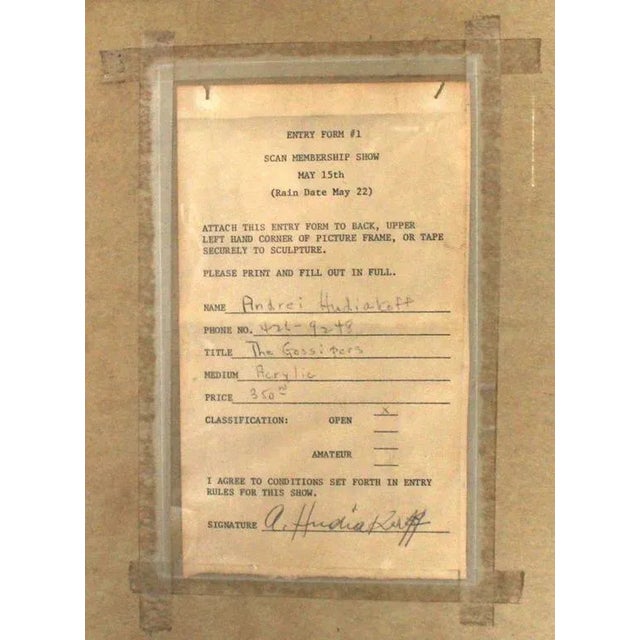 ENTRY FORM #1
SCAN MEMBERSHIP SHOW
MAY 15th
(Rain Date May 22)
ATTACH THIS ENTRY FORM TO BACK, UPPER
LEFT HAND CORNER OF PICTURE FRAME, OR TAPE
SECURELY TO SCULPTURE.
PLEASE PRINT AND FILL OUT IN FULL.
NAME Andrei Hudiakoff
PHONE NO. 426-9248
TITLE The Gossipers
MEDIUM Acrylic
PRICE 350
CLASSIFICATION: OPEN X
AMATEUR
I AGREE TO CONDITIONS SET FORTH IN ENTRY
RULES FOR THIS SHOW.
SIGNATURE A. Hudiakoff